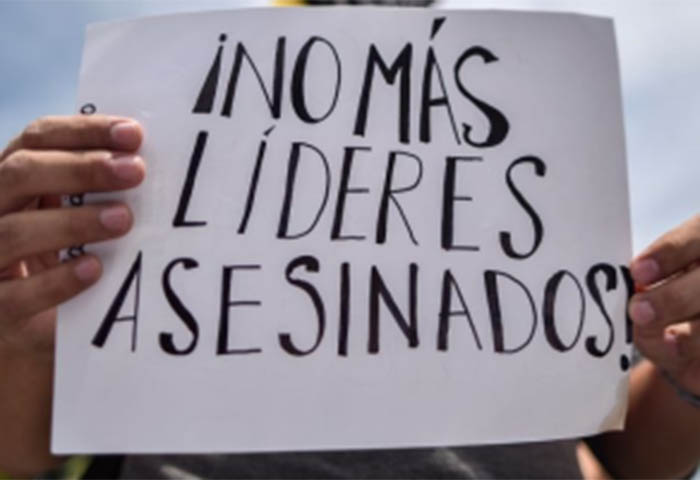 ¡NO MÁS
LÍDERES
ASESINADOS!